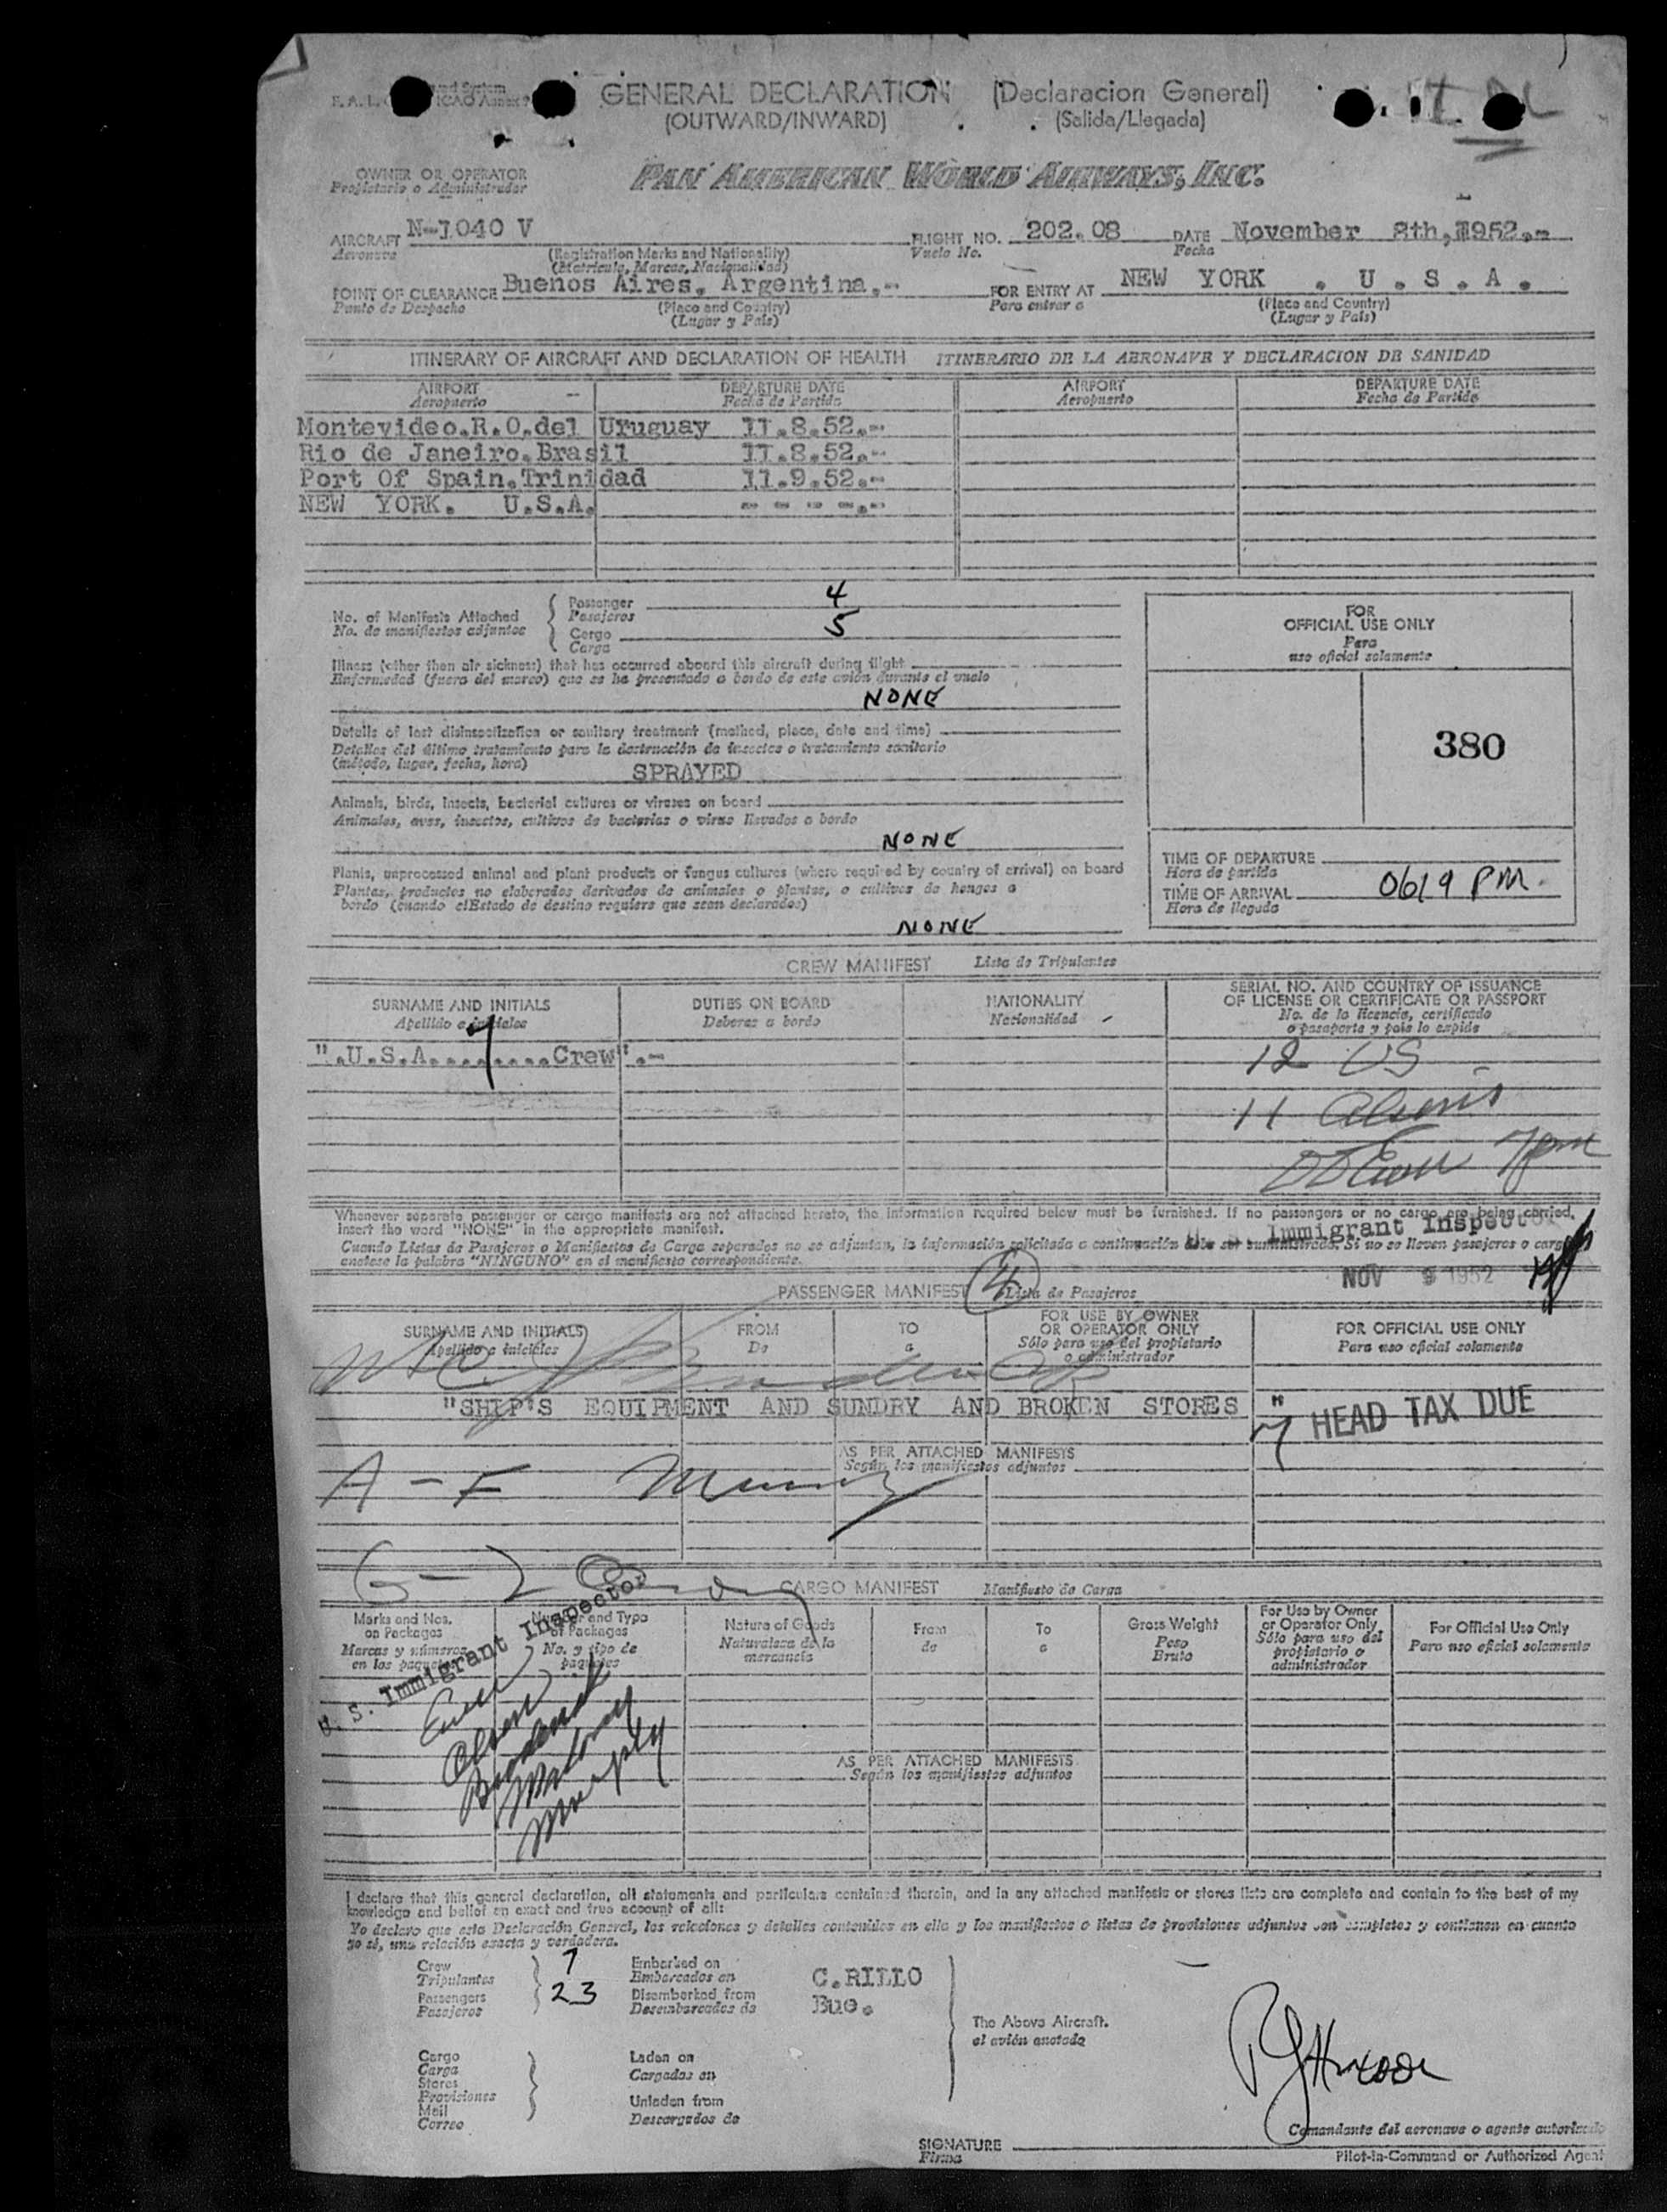 GENERAL DECLARATION (Declaracion General)
(OUTWARD/INWARD) (Salida/Llegada)
OWNER OR OPERATOR
Propietario o Administrador
PAN AMERICAN WORLD AIRWAYS, INC.
AIRCRAFT N-1040 V FLIGHT NO. 202.08 DATE November 8th, 1952.-
Aeronave (Registration Marks and Nationality) Vuelo No. Fecha
(Matricula, Marcas, Nacionalidad)
POINT OF CLEARANCE Buenos Aires. Argentina.- FOR ENTRY AT NEW YORK . U . S . A .
Punto de Despacho (Place and Country) Para entrar a (Place and Country)
(Lugar y País) (Lugar y País)
ITINERARY OF AIRCRAFT AND DECLARATION OF HEALTH ITINERARIO DE LA AERONAVE Y DECLARACION DE SANIDAD
AIRPORT DEPARTURE DATE AIRPORT DEPARTURE DATE
Aeropuerto Fecha de Partida Aeropuerto Fecha de Partida
Montevideo.R.O.del Uruguay 11.8.52.-
Rio de Janeiro.Brasil 11.8.52.-
Port Of Spain.Trinidad 11.9.52.-
NEW YORK. U.S.A. - - - -.-
No. of Manifests Attached Passenger 4
No. de manifiestos adjuntos Pasajeros
Cargo 5
Carga
FOR
OFFICIAL USE ONLY
Para
uso oficial solamente
Illness (other than air sickness) that has occurred aboard this aircraft during flight
Enfermedad (fuera del mareo) que se ha presentado a bordo de este avión durante el vuelo
NONE
Details of last disinsectization or sanitary treatment (method, place, date and time)
Detalles del último tratamiento para la destrucción de insectos o tratamiento sanitario
(método, lugar, fecha, hora) SPRAYED
380
Animals, birds, insects, bacterial cultures or viruses on board
Animales, aves, insectos, cultivos de bacterias o virus llevados a bordo
NONE
Plants, unprocessed animal and plant products or fungus cultures (where required by country of arrival) on board
Plantas, productos no elaborados derivados de animales o plantas, o cultivos de hongos a
bordo (cuando el Estado de destino requiera que sean declarados)
NONE
TIME OF DEPARTURE
Hora de partida
TIME OF ARRIVAL 0619 PM.
Hora de llegada
CREW MANIFEST Lista de Tripulantes
SURNAME AND INITIALS DUTIES ON BOARD NATIONALITY SERIAL NO. AND COUNTRY OF ISSUANCE
OF LICENSE OR CERTIFICATE OR PASSPORT
Apellido e iniciales Deberes a bordo Nacionalidad No. de la licencia, certificado
o pasaporte y país lo expide
".U.S.A.........Crew".-
7
12 US
11 Aliens
7pm
Whenever separate passenger or cargo manifests are not attached hereto, the information required below must be furnished. If no passengers or no cargo are being carried,
insert the word "NONE" in the appropriate manifest.
Cuando Listas de Pasajeros o Manifiestos de Carga separados no se adjuntan, la información solicitada a continuación debe ser suministrada. Si no se llevan pasajeros o carga
anotese la palabra "NINGUNO" en el manifiesto correspondiente.
U. S. Immigrant Inspector
NOV 9 1952
PASSENGER MANIFEST 4 Lista de Pasajeros
SURNAME AND INITIALS FROM TO FOR USE BY OWNER
OR OPERATOR ONLY FOR OFFICIAL USE ONLY
Apellido e iniciales De a Sólo para uso del propietario
o administrador Para uso oficial solamente
"SHIP'S EQUIPMENT AND SUNDRY AND BROKEN STORES "
7 HEAD TAX DUE
AS PER ATTACHED MANIFESTS
Según los manifiestos adjuntos
A - F
G - Z
CARGO MANIFEST Manifiesto de Carga
Marks and Nos.
on Packages
Marcas y números
en los paquetes
Number and Type
of Packages
No. y tipo de
paquetes
Nature of Goods
Naturaleza de la
mercancía
From
de
To
a
Gross Weight
Peso
Bruto
For Use by Owner
or Operator Only
Sólo para uso del
propietario o
administrador
For Official Use Only
Para uso oficial solamente
U. S. Immigrant Inspector
Murphy
AS PER ATTACHED MANIFESTS
Según los manifiestos adjuntos
I declare that this general declaration, all statements and particulars contained therein, and in any attached manifests or stores lists are complete and contain to the best of my
knowledge and belief an exact and true account of all:
Yo declaro que esta Declaración General, las relaciones y detalles contenidos en ella y los manifiestos o listas de provisiones adjuntos son completos y contienen en cuanto
yo sé, una relación exacta y verdadera.
Crew 7 Embarked on
Tripulantes Embarcados en C.RILLO
Passengers 23 Disembarked from
Pasajeros Desembarcados de Bue.
The Above Aircraft.
el avión anotado
Cargo Laden on
Carga Cargados en
Stores
Provisiones Unladen from
Mail Descargados de
Correo
Comandante del aeronave o agente autorizado
SIGNATURE
Firma
Pilot-in-Command or Authorized Agent